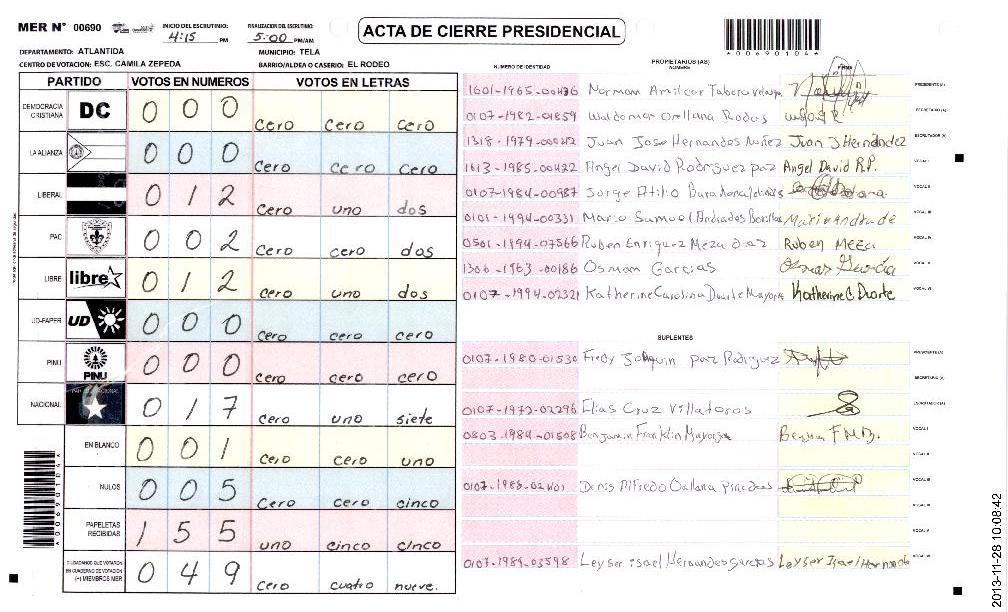 MER N° 00690
INICIO DEL ESCRUTINIO: 4:15 PM
FINALIZACION DEL ESCRUTINIO: 5:00 PM/AM
ACTA DE CIERRE PRESIDENCIAL
*00690104*
DEPARTAMENTO: ATLANTIDA MUNICIPIO: TELA
CENTRO DE VOTACION: ESC. CAMILA ZEPEDA BARRIO/ALDEA O CASERIO: EL RODEO
PARTIDO VOTOS EN NUMEROS VOTOS EN LETRAS
DEMOCRACIA CRISTIANA DC 0 0 0 cero cero cero
LA ALIANZA 0 0 0 cero cero cero
LIBERAL 0 1 2 cero uno dos
PAC 0 0 2 cero cero dos
LIBRE libre 0 1 2 cero uno dos
UD-FAPER UD 0 0 0 cero cero cero
PINU PINU 0 0 0 cero cero cero
NACIONAL 0 1 7 cero uno siete
EN BLANCO 0 0 1 cero cero uno
NULOS 0 0 5 cero cero cinco
PAPELETAS RECIBIDAS 1 5 5 uno cinco cinco
CIUDADANOS QUE VOTARON EN CUADERNO DE VOTACION (+) MIEMBROS MER 0 4 9 cero cuatro nueve.
*00690104*
NUMERO DE IDENTIDAD PROPIETARIOS (AS) NOMBRE FIRMA
1601-1965-00436 Norman Amilcar Tabora PRESIDENTE (A)
0107-1982-01859 Waldemar Orellana Rodas SECRETARIO (A)
1318-1979-00212 Juan Jose Hernandos Nuñez Juan J Hernández ESCRUTADOR (A)
1613-1985-00422 Angel David Rodriguez paz Angel David R.P. VOCAL I
0107-1984-00987 Jorge Atilio VOCAL II
0101-1994-00331 Mario Samuel Andrades VOCAL III
0501-1994-07566 Ruben Enriquez Meza diaz Ruben Meza VOCAL IV
1306-1963-00186 Osman Garcias VOCAL V
0107-1994-02321 Katherine Carolina Duarte Mayorga Katherine C Duarte VOCAL VI
SUPLENTES
0107-1980-01530 Fredy Joaquin paz Rodriguez PRESIDENTE (A)
SECRETARIO (A)
0107-1972-02296 Elias Cruz Villatoros ESCRUTADOR (A)
0803-1984-01508 Benjamin Franklin Mayorga VOCAL I
VOCAL II
Denis Alfredo Orellana VOCAL III
VOCAL IV
VOCAL V
0107-1989-03598 Leyser isael Hernandes garcias Leyser Isael VOCAL VI
2013-11-28 10:08:42